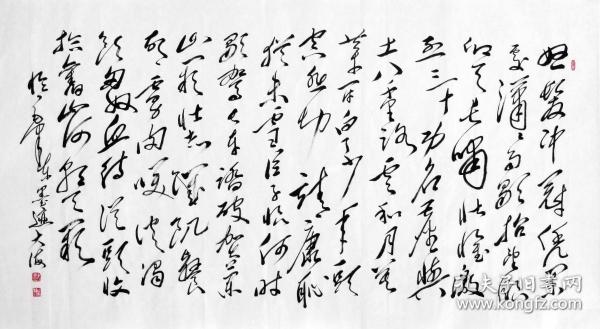 怒髮冲冠凭栏
处潇潇雨歇抬望眼
仰天长啸壮怀激
烈三十功名尘与
土八千里路云和月莫
等闲白了少年头
空悲切靖康耻
犹未雪臣子恨何时
驾长车踏破贺兰
山缺壮志饥餐
胡虏肉笑谈渴
饮匈奴血待从头收
拾旧山河朝天阙
临毛泽东墨迹大海
孔夫子旧书网
www.kongfz.com